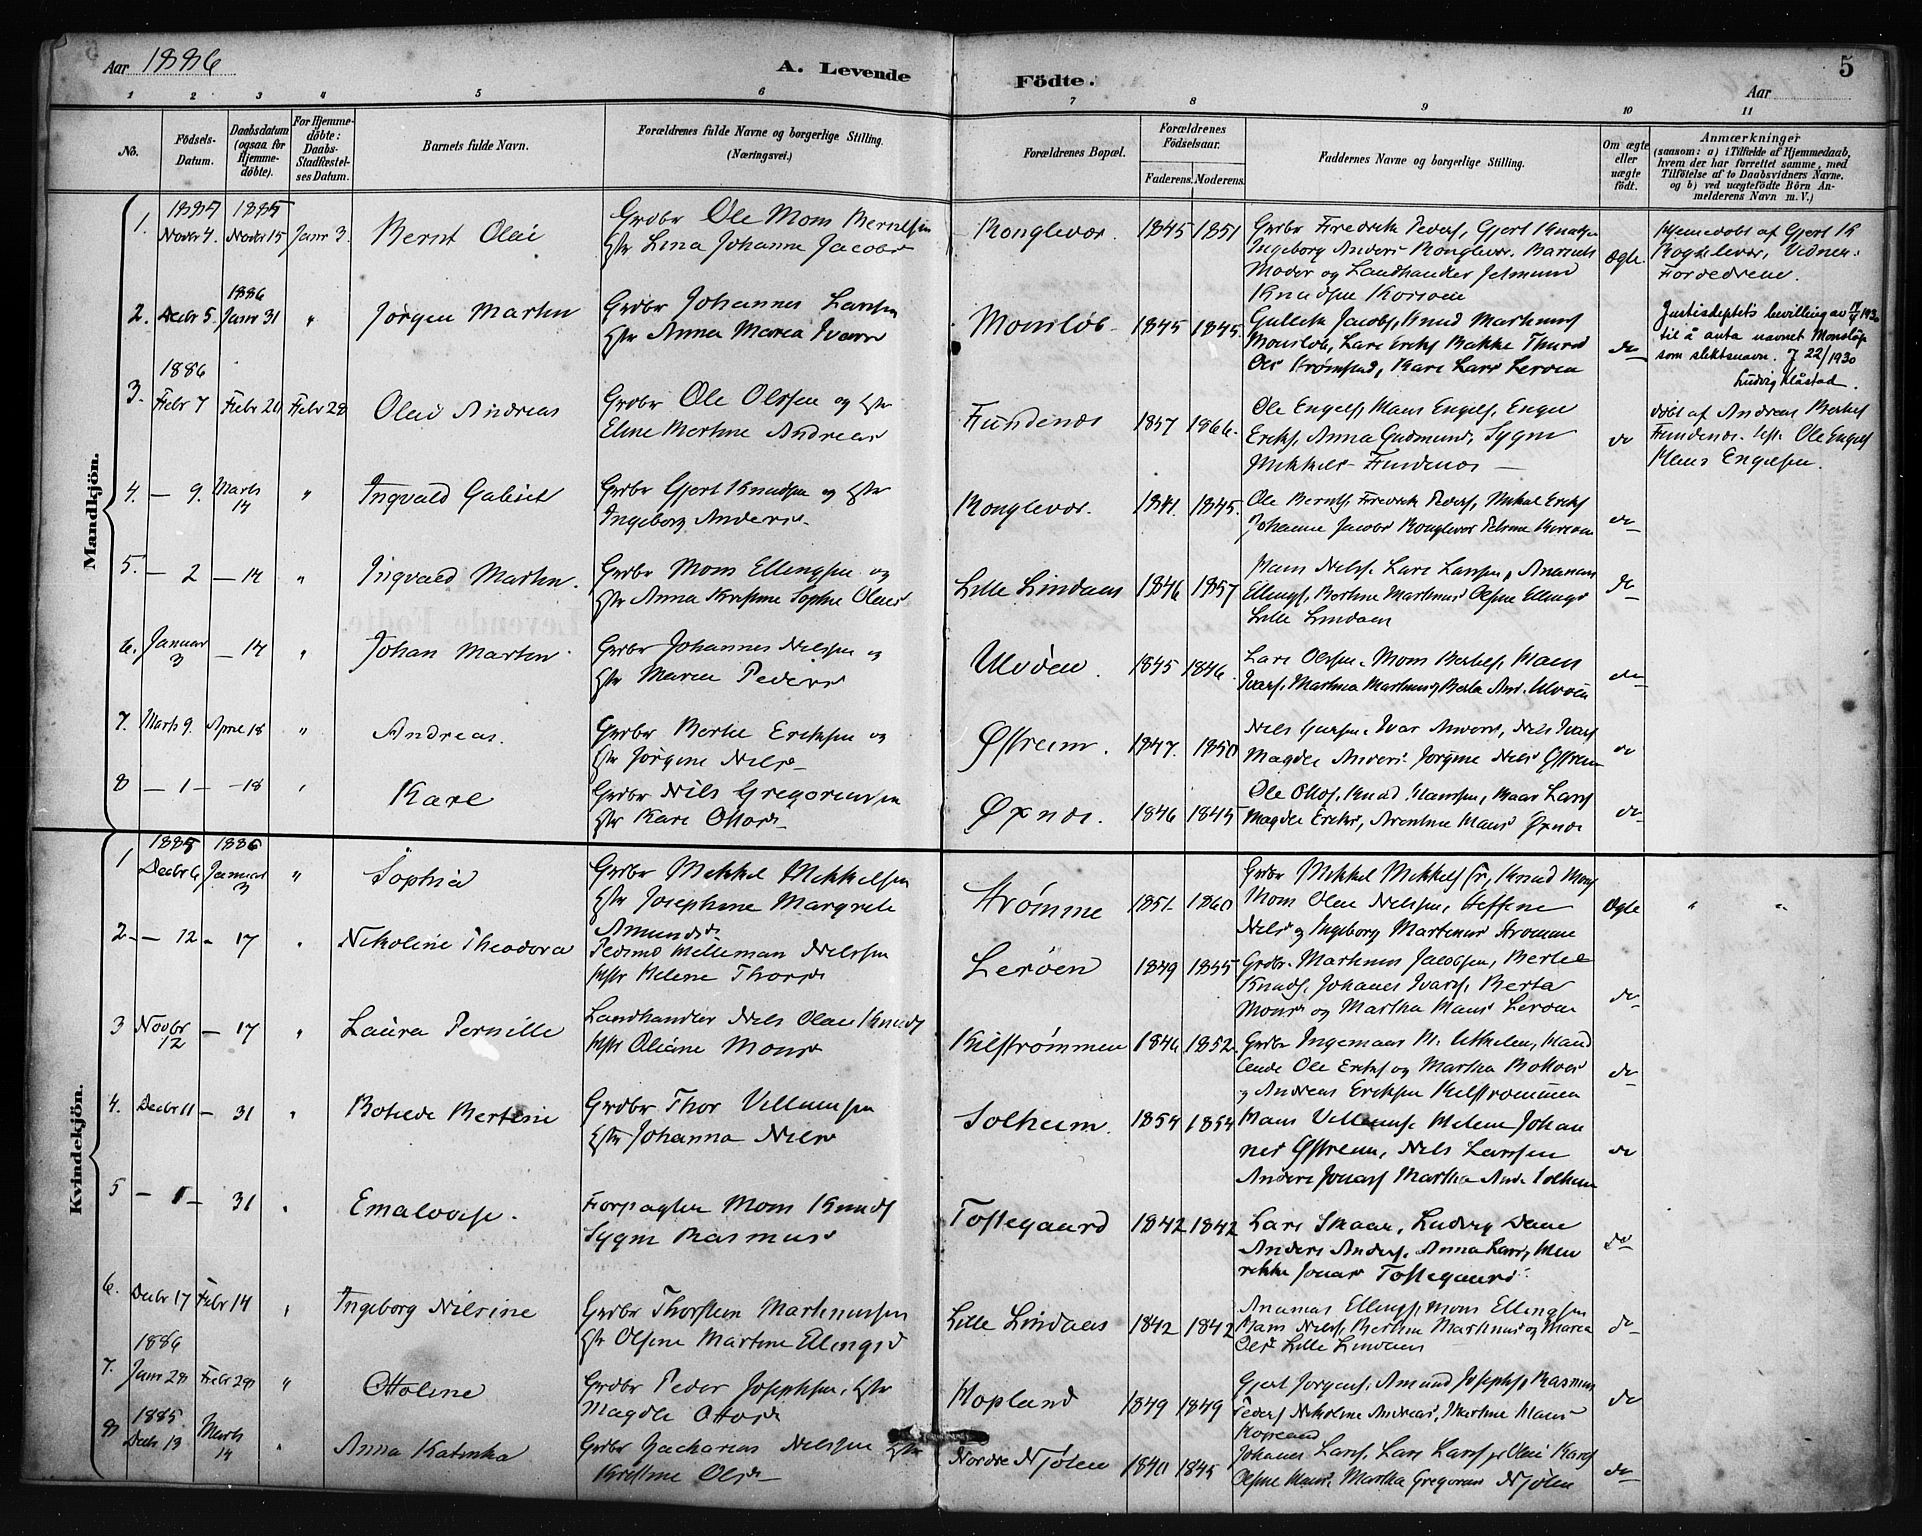 Aar 1886
A. Levende
Födte.
5
Aar
1 2 3 4 5 6 7 8 9 10 11
No.
Födsels-Datum.
Daabsdatum (ogsaa for Hjemme-döbte).
For Hjemme-döbte: Daabs-Stadfæstel-ses Datum.
Barnets fulde Navn.
Forældrenes fulde Navne og borgerlige Stilling.
(Næringsvei.)
Forældrenes Bopæl.
Forældrenes Födselsaar.
Faderens. Moderens.
Faddernes Navne og borgerlige Stilling.
Om ægte eller uægte födt.
Anmærkninger
(saasom: a) i Tilfælde af Hjemmedaab, hvem der har forrettet samme, med Tilföielse af to Daabsvidners Navne. og b) ved uægtefödte Börn An-melderens Navn m. V.)
Mandkjön.
1. 1885 Novbr 4. 1885 Novbr 15 Janr 3. Bernt Olai
Grdbr Ole Mons Berntsen
Hstr Lina Johanne Jacobsd
Ronglevær. 1845 1851
Grdbr Fredrik Peders, Gjert Knuds
Ingeborg Anders Ronglevær. Barnets
Moder og Landhandler Jetmund
Knudsen
Ægte
Hjemedøbt af Gjert K
Ronglevær, Vidner:
Forældrene.
2. Decbr 5. 1886 Janr 31 " Jørgen Martin
Grdbr Johannes Larssen
Hstr Anna Maria Ivars
Monsløb. 1845 1845.
Gullik Jacobs, Knud Markuss
Monsløb, Lars Eriks Bakke
Ols Strømsnd, Kari Lars Lerøen
do
Justisdept's bevilling av
til å anta navnet Monsløp
som slektsnavn. J 22/1930
Ludvig Kåstad.
3. 1886 Febr 7 Febr 21 Febr 28 Olai Andreas
Grdbr Ole Olssen og Hstr
Eline Martine Andreasd
Fundenes 1857 1866.
Ole Engels, Hans Engels, Engel
Eriks, Anna Gudmunds, Sygni
Mikkels Fundenes
do
døbt af Andreas Bertels
Fundenes. Ole Engels
Hans Engelsen.
4. — 9. Marts 14 " Ingvald Gabriel
Grdbr Gjert Knudsen og Hstr
Ingeborg Anders
Ronglevær. 1841. 1845.
Ole Bernts, Fredrik Peders, Mikal Eriks
Johanne Jacobs Ronglevær
do
5. — 2 — 14 " Ingvald Martin.
Grdbr Mons Ellingsen og
Hstr Anna Kristine Sophie Olais
Lille Lindaas 1846 1857
Hans Nels. Lars Larssen, Ananias
Ellings, Bertine Martinus Olsine Ellings
Lille Lindaas
do
6. Januar 3 — 14 " Johan Martin
Grdbr Johannes Nelssen og
Hstr Maria Peders
Ulvøen. 1845 1846.
Lars Olssen. Mons Bertels, Hans
Ivars, Martha Martinus, Berta And. Ulvøen
do
7. Marts 9. April 18 " Andreas.
Grdbr Bertel Eriksen og
Hstr Jørgine Nels
Østreim. 1847. 1850
Magdele Anders Jørgine Nels Østreim
do
8 — 1 — -18 " Karl
Grdbr Nils Gregoriussen
Hstr Kari Ottos
Øxnes. 1846 1845
Ole Ottos, Knud Hanssen, Baar Lars
Magdele Eriks, Arentine Hans Øxnes
do
Kvindekjön.
1 1885 Decbr 6 1886 Januar 3 " Sophia
Grdbr Mikkel Mikkelsen
Hstr Josephine Margrete
Amunds
Strømme 1851 1860
Grdbr Mikkel Mikkels Sr, Knud Mons
Mons Olai Nelssen, Steffine
Nels og Ingeborg Martinus Strømme
Ægte " "
2 - 12 - 17 " Nikoline Theodora
Pedsmd Milleman Nelssen
Hstr Helene Thors
Lerøen 1849 1855
Grdbr. Martinus Jacobsen, Bertel
Knuds, Johanes Ivars, Berta
Mons og Martha Hans Lerøen
do
3 Novbr 12 — 17 " Laura Pernille
Landhandler Nels Olai Knuds
Hstr Oliane Mons
Kilstrømmen 1846 1852.
Grdbr Ingemans M. Mikkelsen, Hand
lende Ole Eriks og Martha
og Andreas Eriksen Kilstrømmen
do
4. Decbr 11 — 31 " Botilde Bertine
Grdbr Thor Villumsen
Hstr Johanna Nels
Solheim. 1854 1854
Hans Villums. Helene Johan
nes Østreim, Nels Larssen
Anders Jonas Martha And. Solheim
do
5 — 1 — 31 " Emalovise.
Forpagter Mons Knuds
Sygni Rasmus
Tostegaard 1842 1842
Lars Skaar, Ludvig Dane
Anders Anders, Anna Lars, Hen
rikke Jonas Tostegaard
do
6. Decbr 17 Febr 14 " Ingeborg Nilsine
Grdbr Thorstein Martinussen
Hstr Olsine Martine Ellingsd
Lille Lindaas 1842 1842
Ananias Ellings, Mons Ellingsen
Hans Nels, Bertine Martinus og Maria
Ols Lille Lindaas
do
7. 1886 Janr 28 Febr 28 " Ottoline
Grdbr Peder Josephsen, Hstr
Magdele Ottos
Hopland 1849 1849
Gjert Jørgens, Amund Josephs, Rasmus
Peders Nikoline Andreas, Martine Hans
Hopland
do
8 1885. Decb 13 Marts 14 " Anna Katinka
Grdbr Zacharias Nelssen Hstr
Kristine Ols
Nordre Njøten 1840 1845
Johanes Lars, Lars Lars,
Olsine Hans, Martha Gregorius Njøten
do